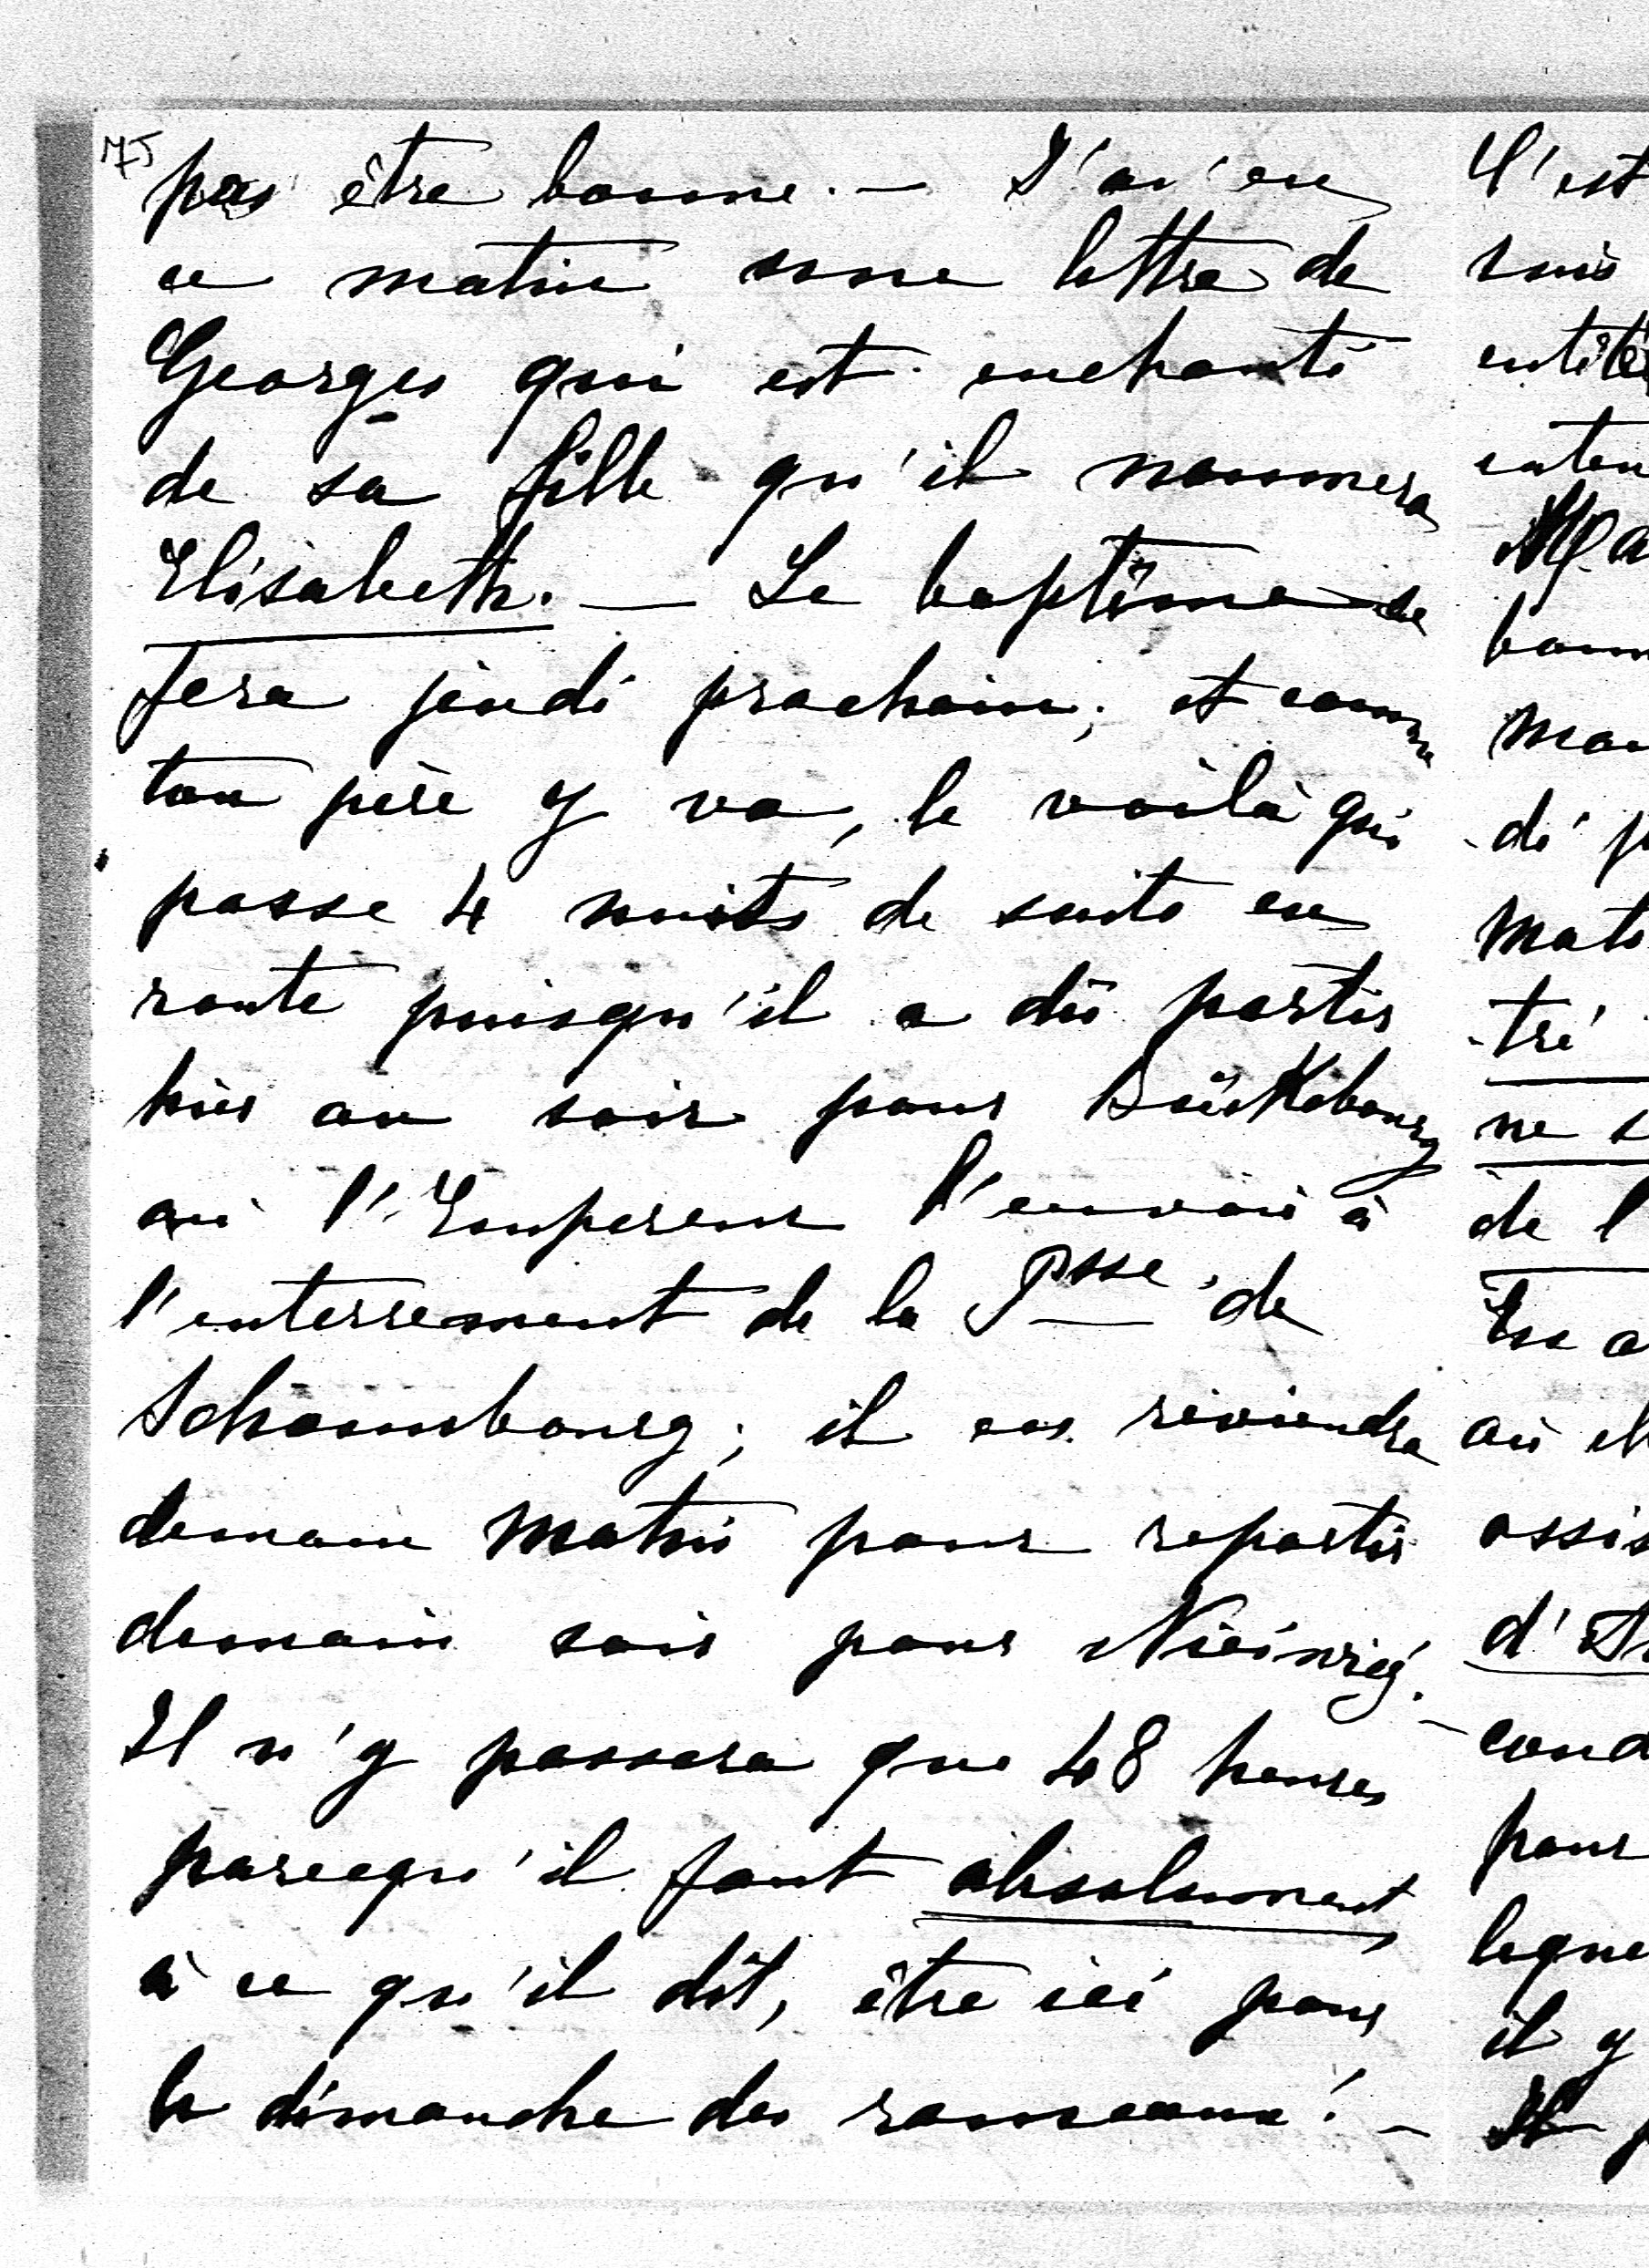 75
pas être bonne. — J'ai eu
ce matin une lettre de
Georges qui est enchanté
de sa fille qu'il nommera
Elisabeth. — Le baptême se
fera jeudi prochain; et comme
ton père y va, le voilà qui
passe 4 nuits de suite en
route puisqu'il a dû partir
hier au soir pour Bückebourg
où l'Empereur l'envoie à
l'enterrement de la Psse de
Schaumbourg; il en reviendra
demain matin pour repartir
demain soir pour
Il n'y passera que 48 heures
parcequ'il faut absolument
à ce qu'il dit, être ici pour
le dimanche des rameaux! —
C'est
suis
entêté
enten
Ma
bonn
man
-dé p
mate
-tré
ne s
de l
où el
assis
cond
pour
leque
il y
Il p